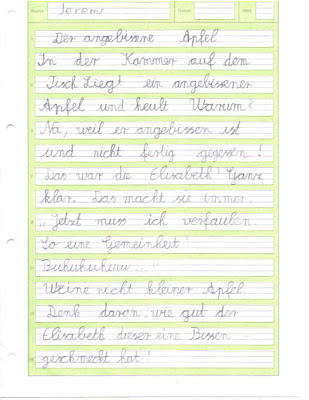 Jeremy
Der angebissene Apfel
In der Kammer auf dem
Tisch Liegt ein angebissener
Apfel und heult. Warum?
Na, weil er angebissen ist
und nicht fertig gegessen!
Das war die Elisabeth! Ganz
klar. Das macht sie immer.
„Jetzt muss ich verfaulen.
So eine Gemeinheit!
Buhuhuhuuu..."
Weine nicht kleiner Apfel.
Denk daron, wie gut der
Elisabeth dieser eine Bissen
geschmeckt hat!